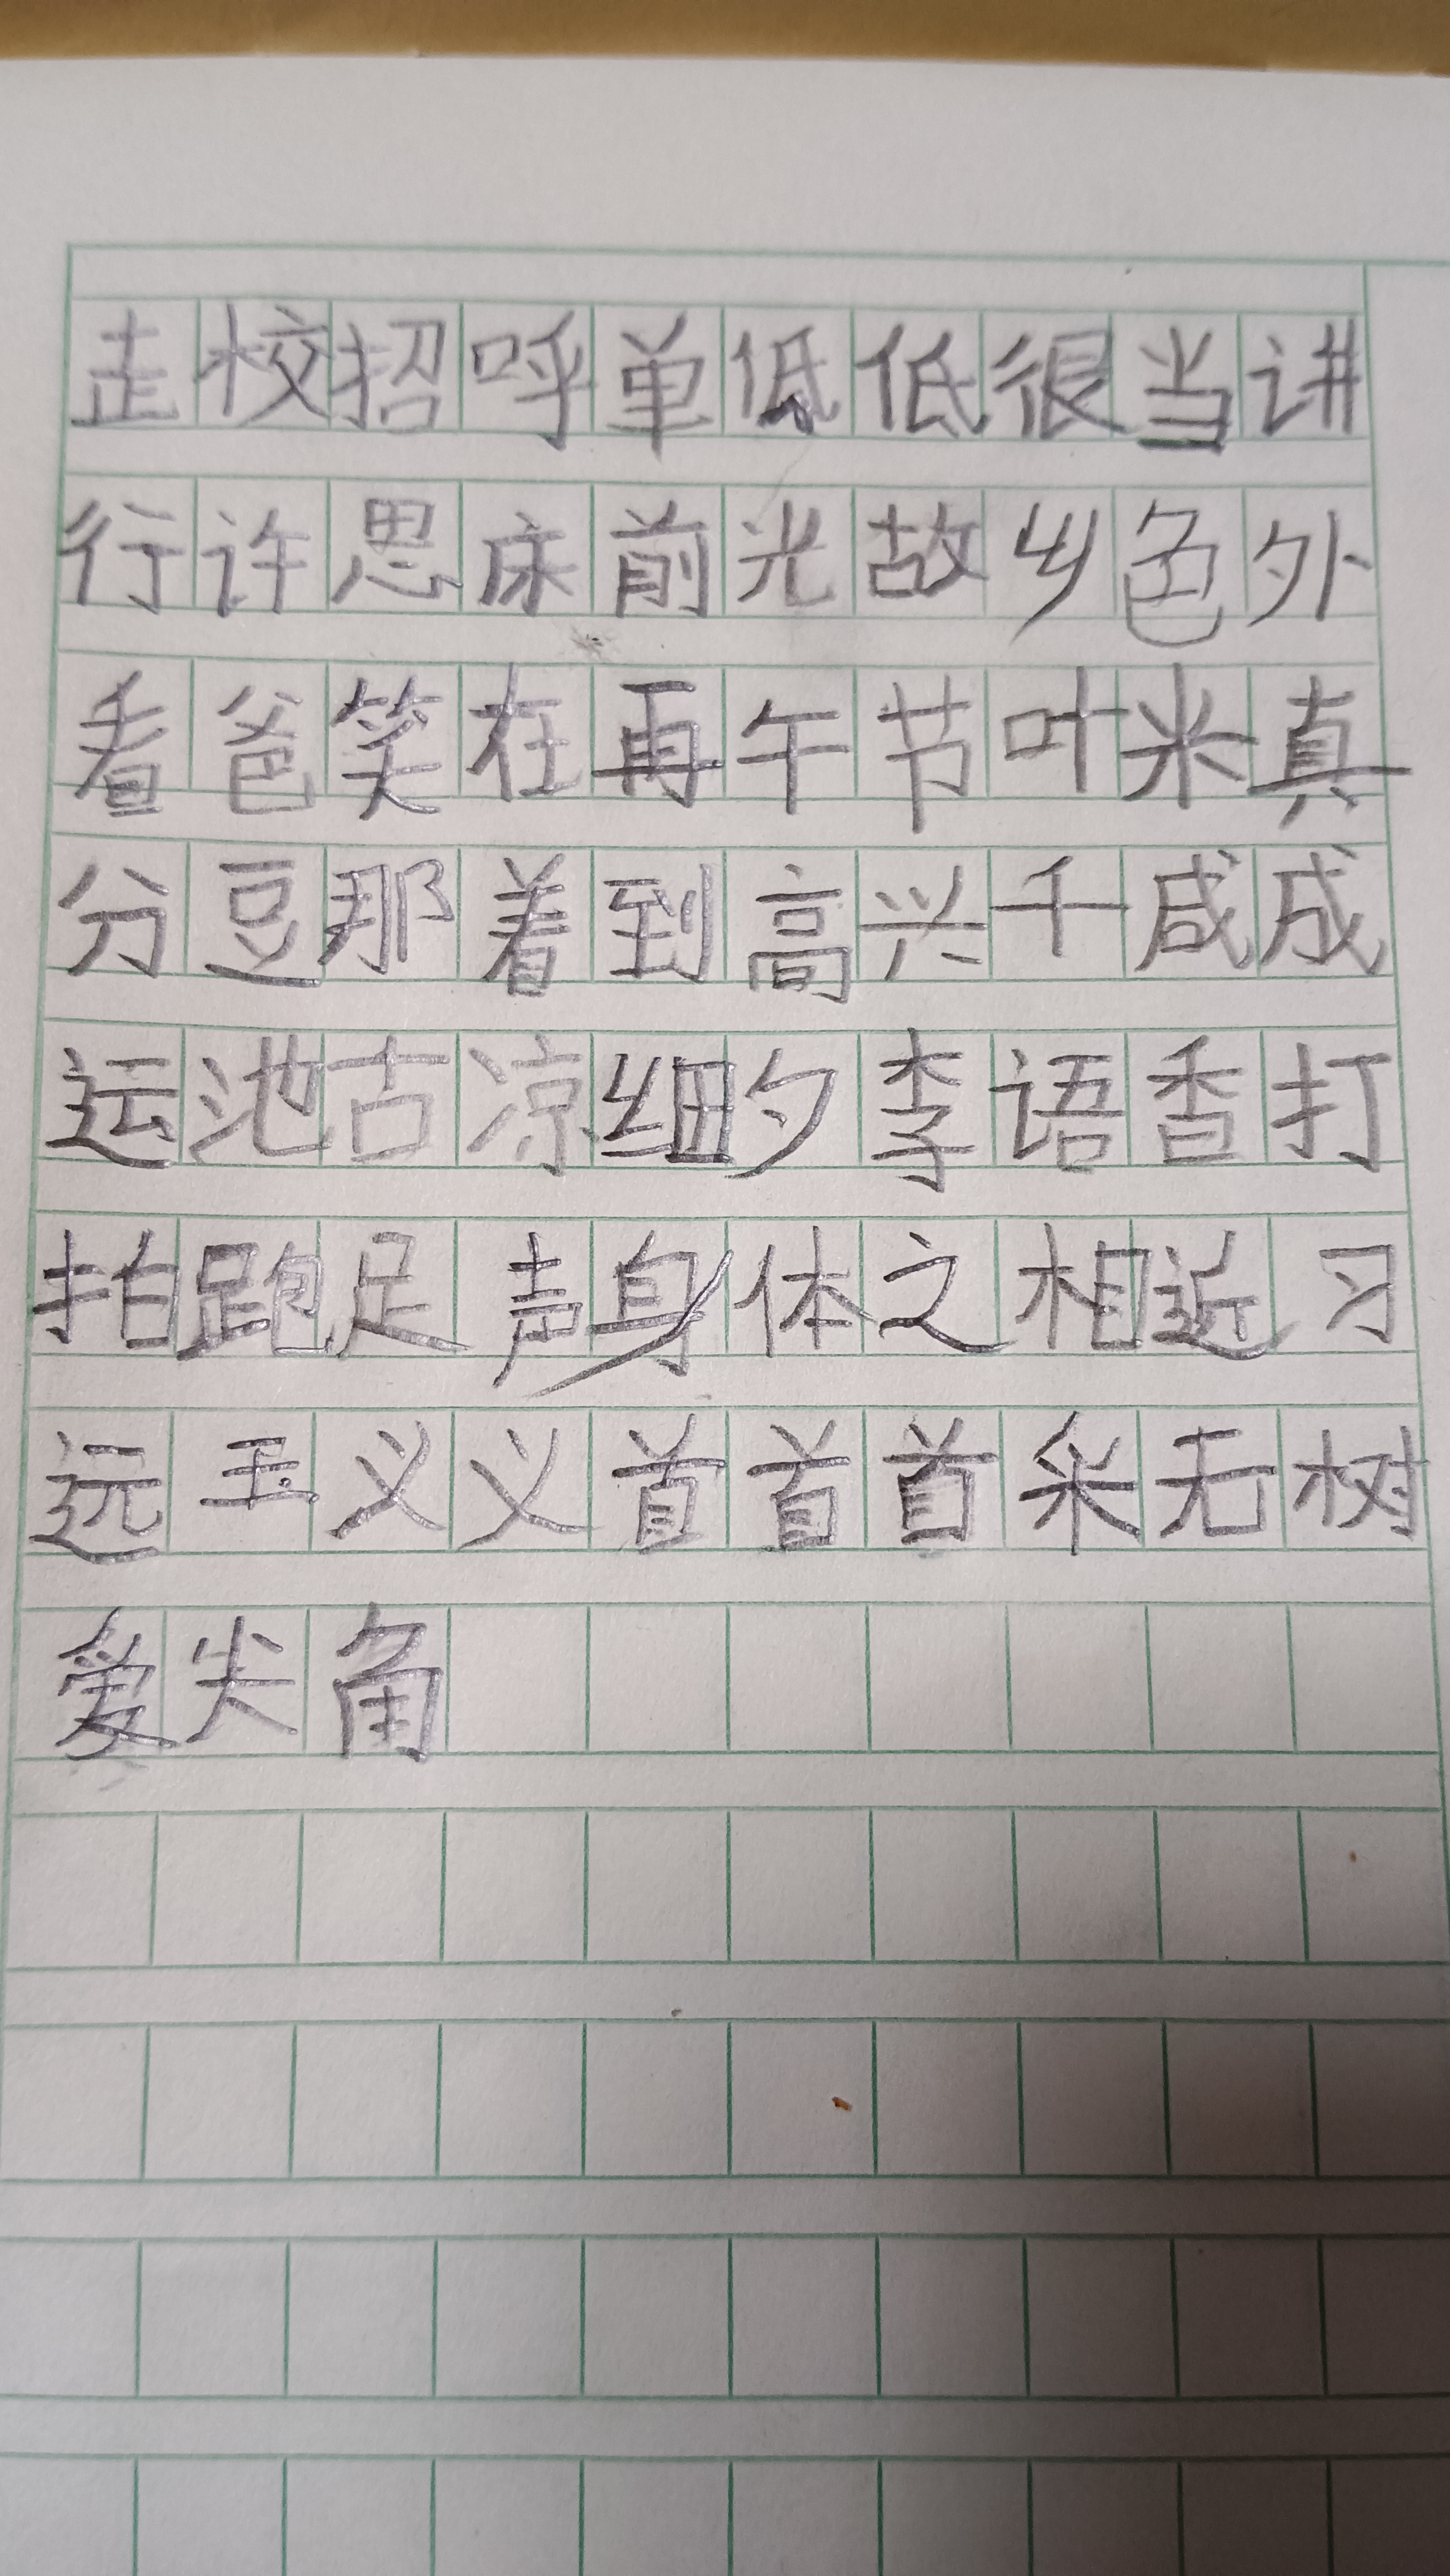 走校招呼单低低很当讲
行许思床前光故乡色外
看爸笑在再午节叶米真
分豆那着到高兴千成成
运池古凉细夕李语香打
拍跑足声身体之相近习
远玉义义首首首采无树
爱尖角